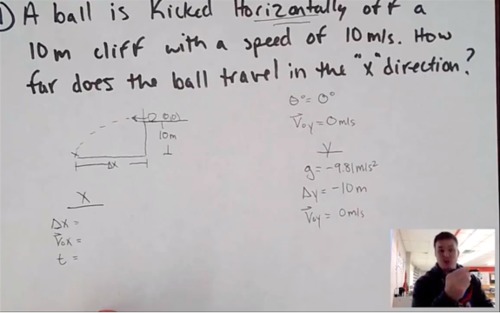 1) A ball is Kicked Horizontally off a
10m cliff with a speed of 10m/s. How
far does the ball travel in the "x" direction?
θ° = 0°
V⃗oy = 0m/s
(0,0)
10m
Δx
y
g = -9.81m/s²
Δy = -10m
V⃗oy = 0m/s
x
Δx =
V⃗ox =
t =